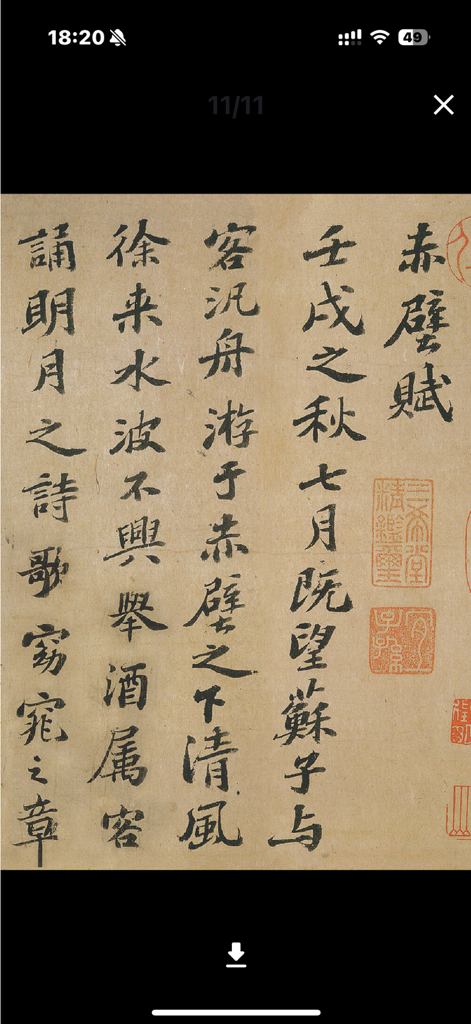 18:20
49
11/11
赤壁賦
壬戌之秋七月既望蘇子与
客汎舟游于赤壁之下清風
徐来水波不興舉酒属客
誦明月之詩歌窈窕之章
三希堂精鑑璽
宜子孫